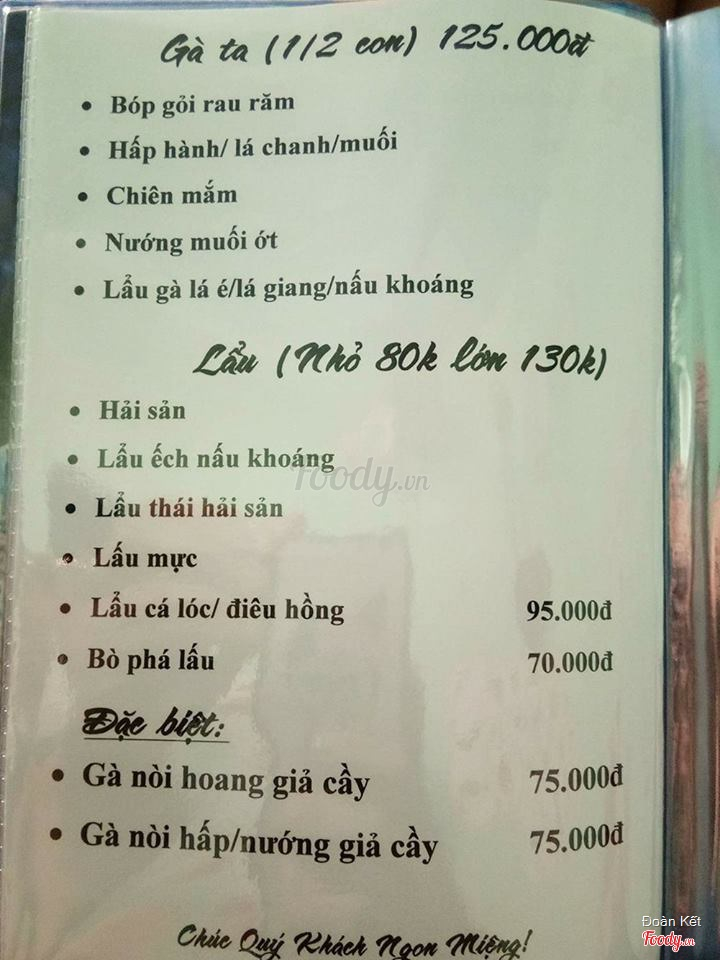 Gà ta (1/2 con) 125.000đ
• Bóp gỏi rau răm
• Hấp hành/ lá chanh/muối
• Chiên mắm
• Nướng muối ớt
• Lẩu gà lá é/lá giang/nấu khoáng
Lẩu (Nhỏ 80k lớn 130k)
• Hải sản
• Lẩu ếch nấu khoáng
Foody.vn
• Lẩu thái hải sản
• Lấu mực
• Lẩu cá lóc/ điêu hồng 95.000đ
• Bò phá lấu 70.000đ
Đặc biệt:
• Gà nòi hoang giả cầy 75.000đ
• Gà nòi hấp/nướng giả cầy 75.000đ
Chúc Quý Khách Ngon Miệng!
Đoàn Kết
Foody.vn